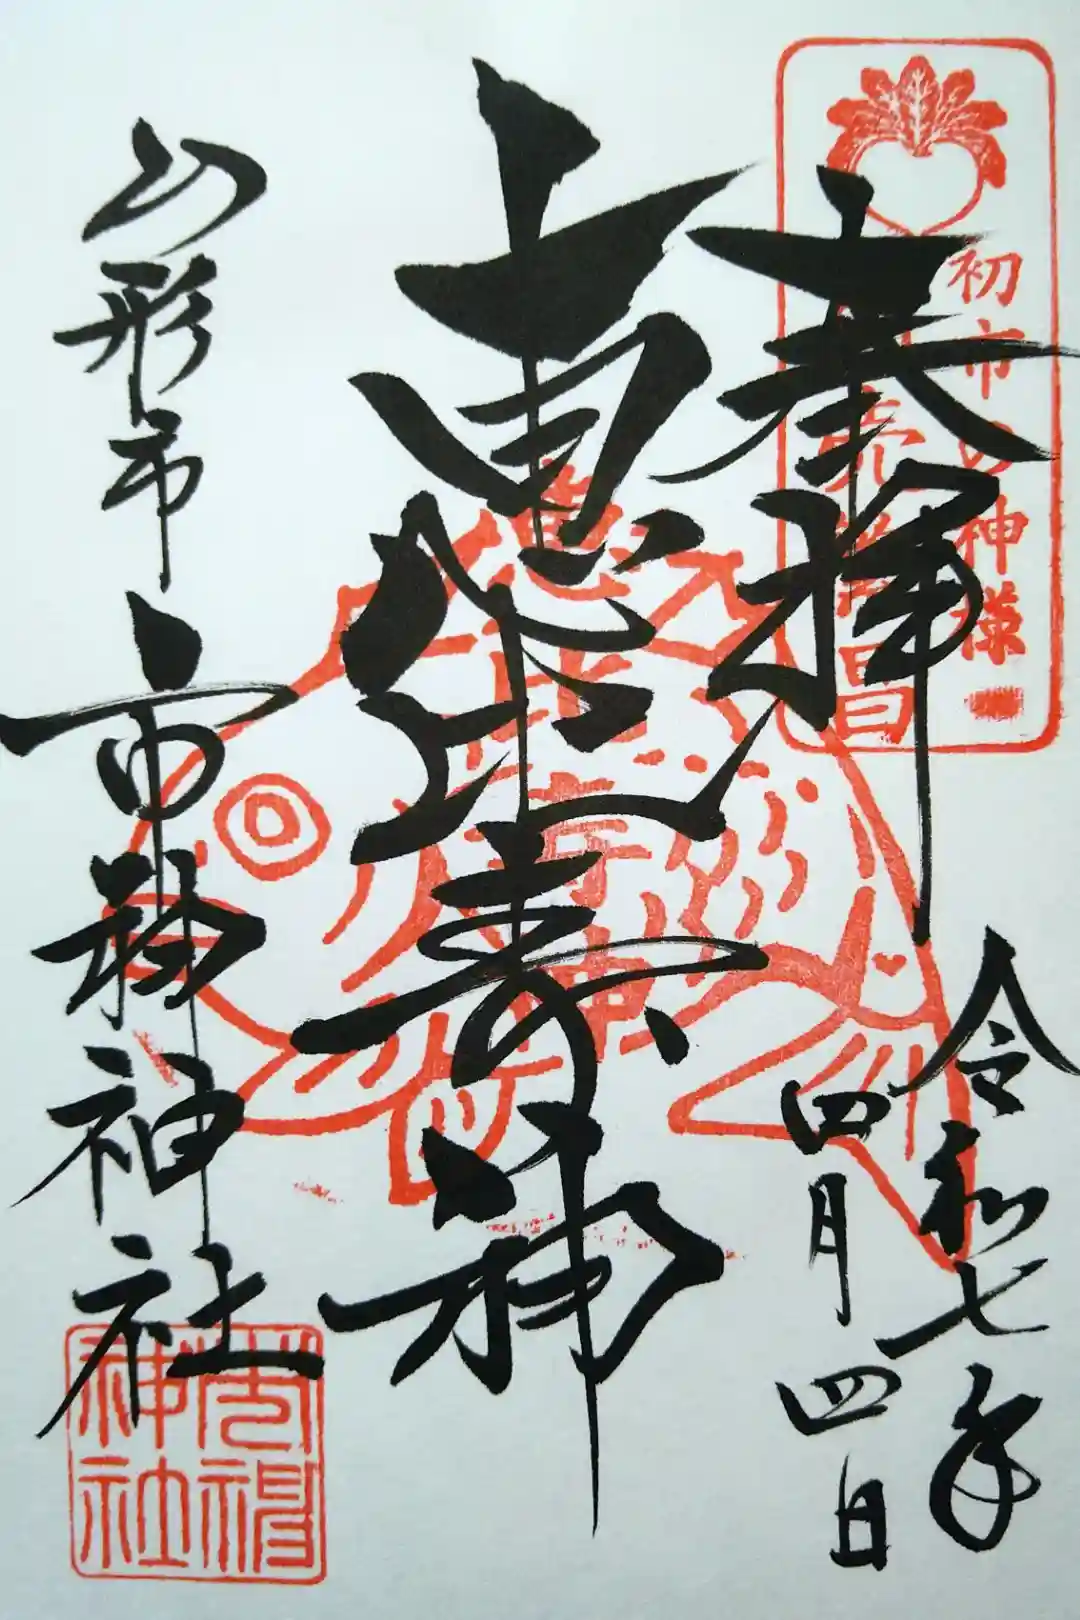 初市の神様
商売繁昌
奉拝
令和七年
四月四日
恵比寿神
山形市
市神神社